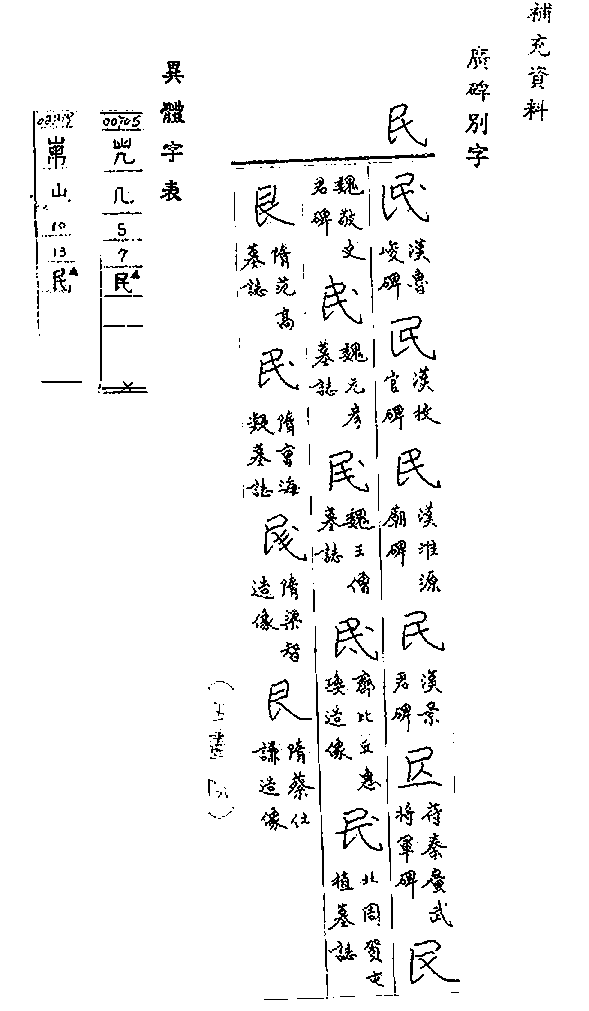 補充資料
廣碑別字
民
民 漢魯峻碑
民 漢校官碑
民 漢淮源廟碑
民 漢景君碑
民 苻秦廣武將軍碑
民 魏敬史君碑
民 魏元彥墓誌
民 魏王僧墓誌
民 齊比丘惠瑍造像
民 北周賀屯植墓誌
民 隋范高墓誌
民 隋寶海類墓誌
民 隋梁智造像
民 隋蔡仕謙造像
(五畫
異體字表
00705
几
5
7
民
山
10
13
民